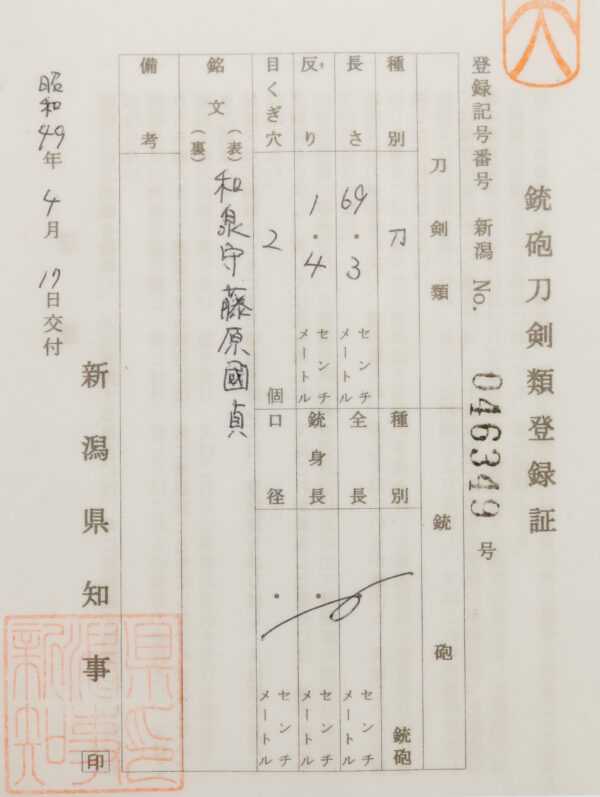 銃砲刀剣類登録証
登録記号番号 新潟 No. 046349 号
刀剣類
種別 刀
長さ 69.3 センチメートル
反り 1.4 センチメートル
目くぎ穴 2 個
銃砲
種別 銃砲
全長 . センチメートル
銃身長 . センチメートル
口径 . センチメートル
銘文 (表) 和泉守藤原國貞
(裏)
備考
昭和49年 4月 17日交付
新潟県知事 印
新潟県知事之印